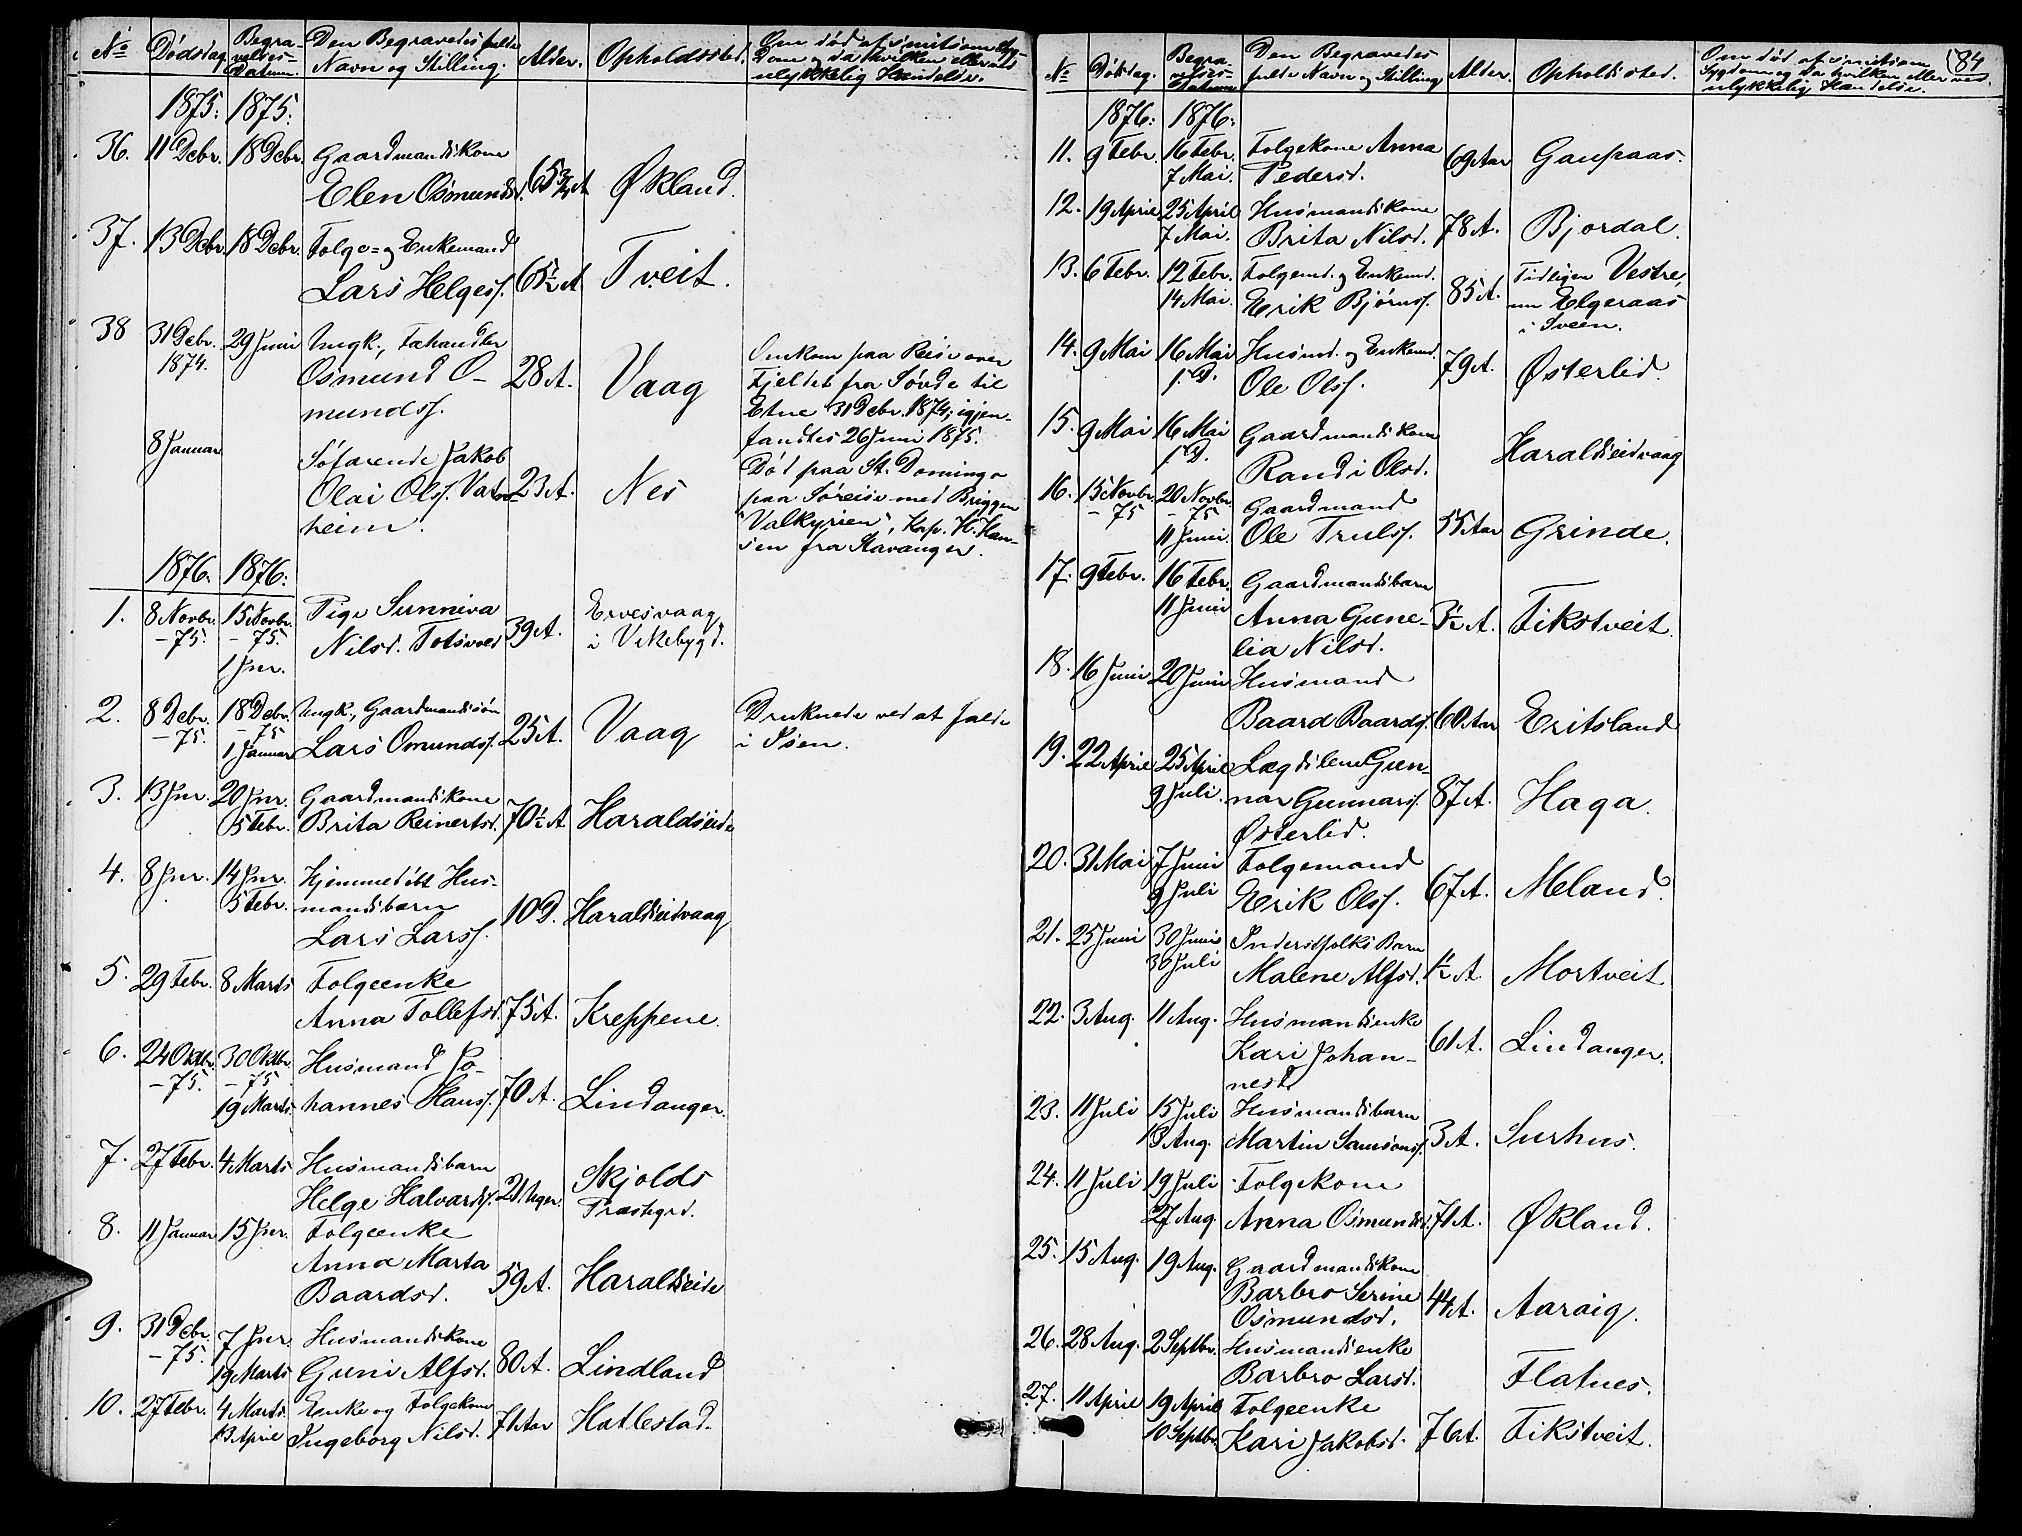 No Dødsdag. Begra-velses-Datum. Den Begravedes fulde Navn og Stilling. Alder. Opholdssted. Om død af smitsom Syg-dom og da hvilken eller ved ulykkelig Hændelse.
1875: 1875:
36. 11 Debr. 18 Debr. Gaardmandskone
Elen Osmundsd. 65 3/4 A Økland.
37. 13 Debr. 18 Debr. Folge- og Enkemand
Lars Helgess. 65½ A Tveit.
38 31 Debr. 29 Juni Ungk., Fæhandler
1874. Osmund O-
mundss. 28 A. Vaag
Omkom paa Reise over
Fjeldet fra Søvde til
Etne 31 Debr. 1874; igjen-
fandtes 26 Juni 1875.
8 Januar Søfarende Jakob
Olai Olss. Vats-
heim. 23 A. Nes
Død paa St. Domingo
paa Søreise med Briggen
"Valkyrien", Kap. H. Han-
sen fra Stavanger.
1876: 1876:
1. 8 Novbr. 15 Novbr. Pige Sunniva
-75. -75. Nilsd. 39 A. Ervesvaag
1 Jnr. i Vikebygd.
2. 8 Debr. 18 Debr. Ungk., Gaardmandssøn
-75. -75 Lars Omundss. 25 A. Vaag Druknede ved at falde
1 Januar i Søen.
3. 13 Jnr. 20 Jnr. Gaardmandskone
5 Febr. Brita Reinertsd. 70½ A Haraldseide
4. 8 Jnr. 14 Jnr. Hjemmedøbt Hus-
5 Febr. mandsbarn
Lars Larss. 10 D. Haraldseidvaag
5. 29 Febr. 8 Marts Folgeenke
Anna Tollefsd. 75 A. Kreppene.
6. 24 Oktbr. 30 Oktbr. Husmand Jo-
-75. -75 hannes Hanss. 70 A. Lindanger.
19 Marts
7. 27 Febr. 4 Marts Husmandsbarn
Helge Halvardss. 21 Uger. Skjolds
Præstegrd.
8. 11 Januar 15 Jnr. Folgeenke
Anna Marta
Baardsd. 59 A. Haraldseide
9. 31 Debr. 7 Jnr. Husmandskone
-75. 19 Marts Guni Alfsd. 80 A. Lindland
10. 27 Febr. 4 Marts Enke og Folgekone
13 April Ingeborg Nilsd. 71 Aar Hatlestad.
184
No Dødsdag. Begra-velses-Datum Den Begravedes fulde Navn og Stilling Alder. Opholdssted. Om død af smitsom Sygdom og da hvilken eller ved ulykkelig Hændelse.
1876: 1876:
11. 9 Febr. 16 Febr. Folgekone Anna
7 Mai. Pedersd. 69 Aar Gaupaas.
12. 19 April 25 April Husmandskone
7 Mai. Brita Nilsd. 78 A. Bjordal.
13. 6 Febr. 12 Febr. Folgemd. og Enkemd. Tidligere Vestre,
14 Mai. Erik Bjørnss. 85 A. nu Elgeraas
i Sveen.
14. 9 Mai 16 Mai Husmd. og Enkemd.
s. D. Ole Olss. 79 A. Østerlid.
15. 9 Mai 16 Mai Gaardmandskone
s. D. Randi Olsd. Haraldseidvaag
16. 15 Novbr. 20 Novbr. Gaardmand
-75 -75 Ole Trulss. 55 Aar Grinde.
11 Juni.
17. 9 Febr. 16 Febr. Gaardmandsbarn
11 Juni Anna Gune-
lia Nilsd. 3½ A. Fikstveit.
18. 16 Juni 20 Juni Husmand
Baard Baardss. 60 Aar Eritsland
19. 22 April 25 April Lægdslem Gun-
9 Juli. nar Gunnarss.
Østerlid. 87 A. Haga.
20. 31 Mai 7 Juni Folgemand
9 Juli Erik Olss. 67 A. Meland.
21. 25 Juni 30 Juni Inderstfolks Barn
30 Juli Malene Alfsd. 1½ A. Mortveit
22. 3 Aug. 11 Aug. Husmandsenke
Kari Johan-
nesd. 61 A. Lindanger.
23. 11 Juli 15 Juli Husmandsbarn
13 Aug. Martin Samsonss. 3 A. Surhus.
24. 11 Juli 19 Juli Folgekone
27 Aug. Anna Osmundsd. 71 A. Økland.
25. 15 Aug. 19 Aug. Gaardmandskone
Barbro Serine
Osmundsd. 44 A. Aaraig.
26. 28 Aug. 2 Septbr. Husmandsenke
Barbro Larsd. Flatnes.
27. 11 April 19 April Folgeenke
10 Septbr. Kari Jakobsd. 76 A. Fikstveit.